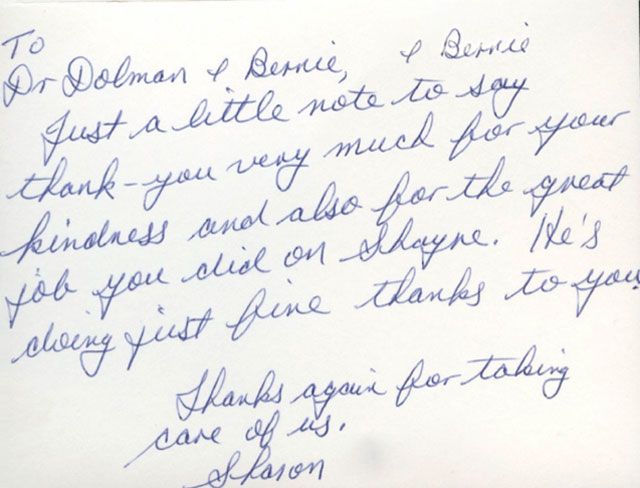 To
Dr Dolman & Bernie, & Bernie
Just a little note to say
thank-you very much for your
kindness and also for the great
job you did on Shayne. He's
doing just fine thanks to you.
Thanks again for taking
care of us.
Sharon